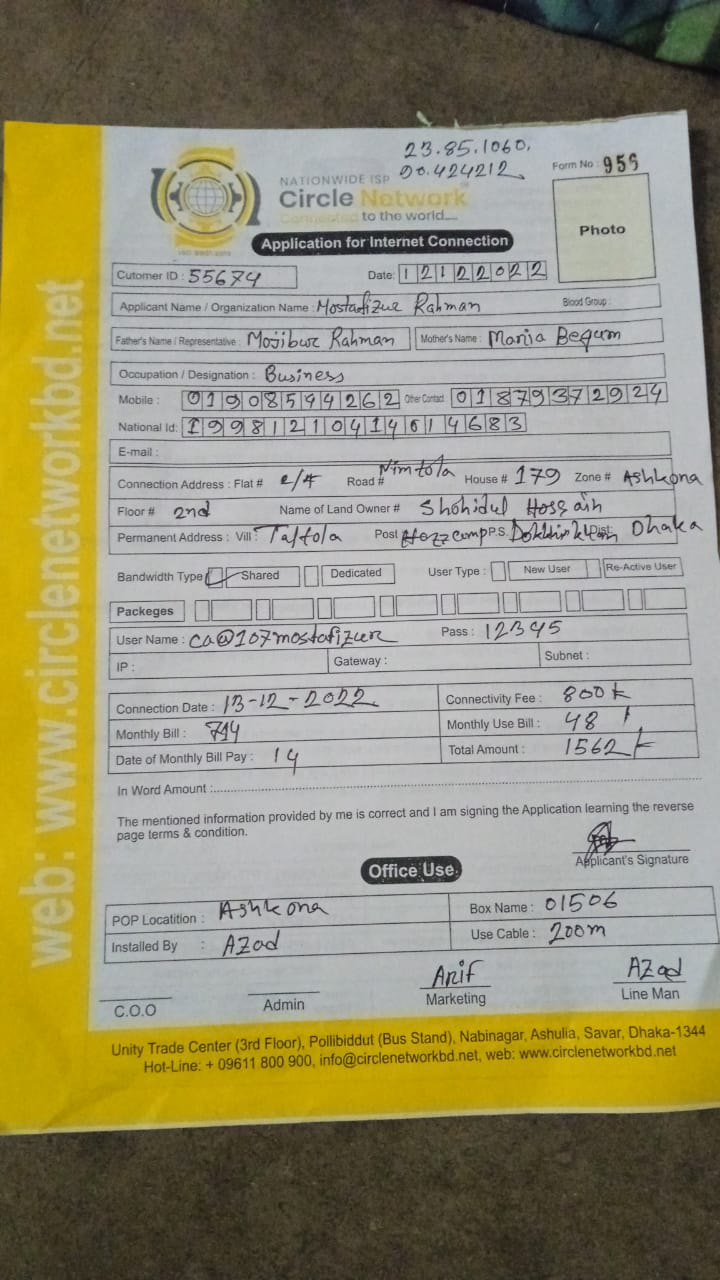 23.85.1060,
90.424212
NATIONWIDE ISP
Circle Network
Connected to the world....
ISO 9001:2015
Form No : 956
Photo
Application for Internet Connection
Cutomer ID : 55674 Date: 12122022
Applicant Name / Organization Name : Mostafizur Rahman Blood Group :
Father's Name / Representative : Mojibur Rahman Mother's Name : Maria Begum
Occupation / Designation : Business
Mobile : 01908594262 Other Contact 01879372924
National Id: 19981210414614683
E-mail :
Connection Address : Flat # Road # Nimtola House # 179 Zone # Ashkona
Floor # 2nd Name of Land Owner # Shohidul Hossain
Permanent Address : Vill : Taltola Post P.S. Dist: Dhaka
Bandwidth Type Shared Dedicated User Type : New User Re-Active User
Packeges
User Name : ca@107mostafizur Pass : 12345
IP : Gateway : Subnet :
Connection Date : 13-12-2022 Connectivity Fee : 800
Monthly Bill : 714 Monthly Use Bill : 48
Date of Monthly Bill Pay : 14 Total Amount : 1562
In Word Amount :
The mentioned information provided by me is correct and I am signing the Application learning the reverse
page terms & condition.
Applicant's Signature
Office Use
POP Locatition : Ashkona Box Name : 01506
Installed By : Azad Use Cable : 200m
C.O.O Admin Arif Marketing Azad Line Man
Unity Trade Center (3rd Floor), Pollibiddut (Bus Stand), Nabinagar, Ashulia, Savar, Dhaka-1344
Hot-Line: + 09611 800 900, info@circlenetworkbd.net, web: www.circlenetworkbd.net
web: www.circlenetworkbd.net